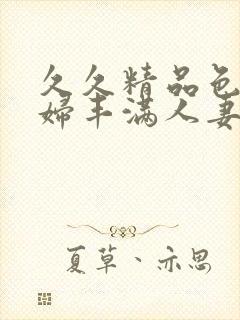 久久精品色
婦丰满人妻
夏草、亦思